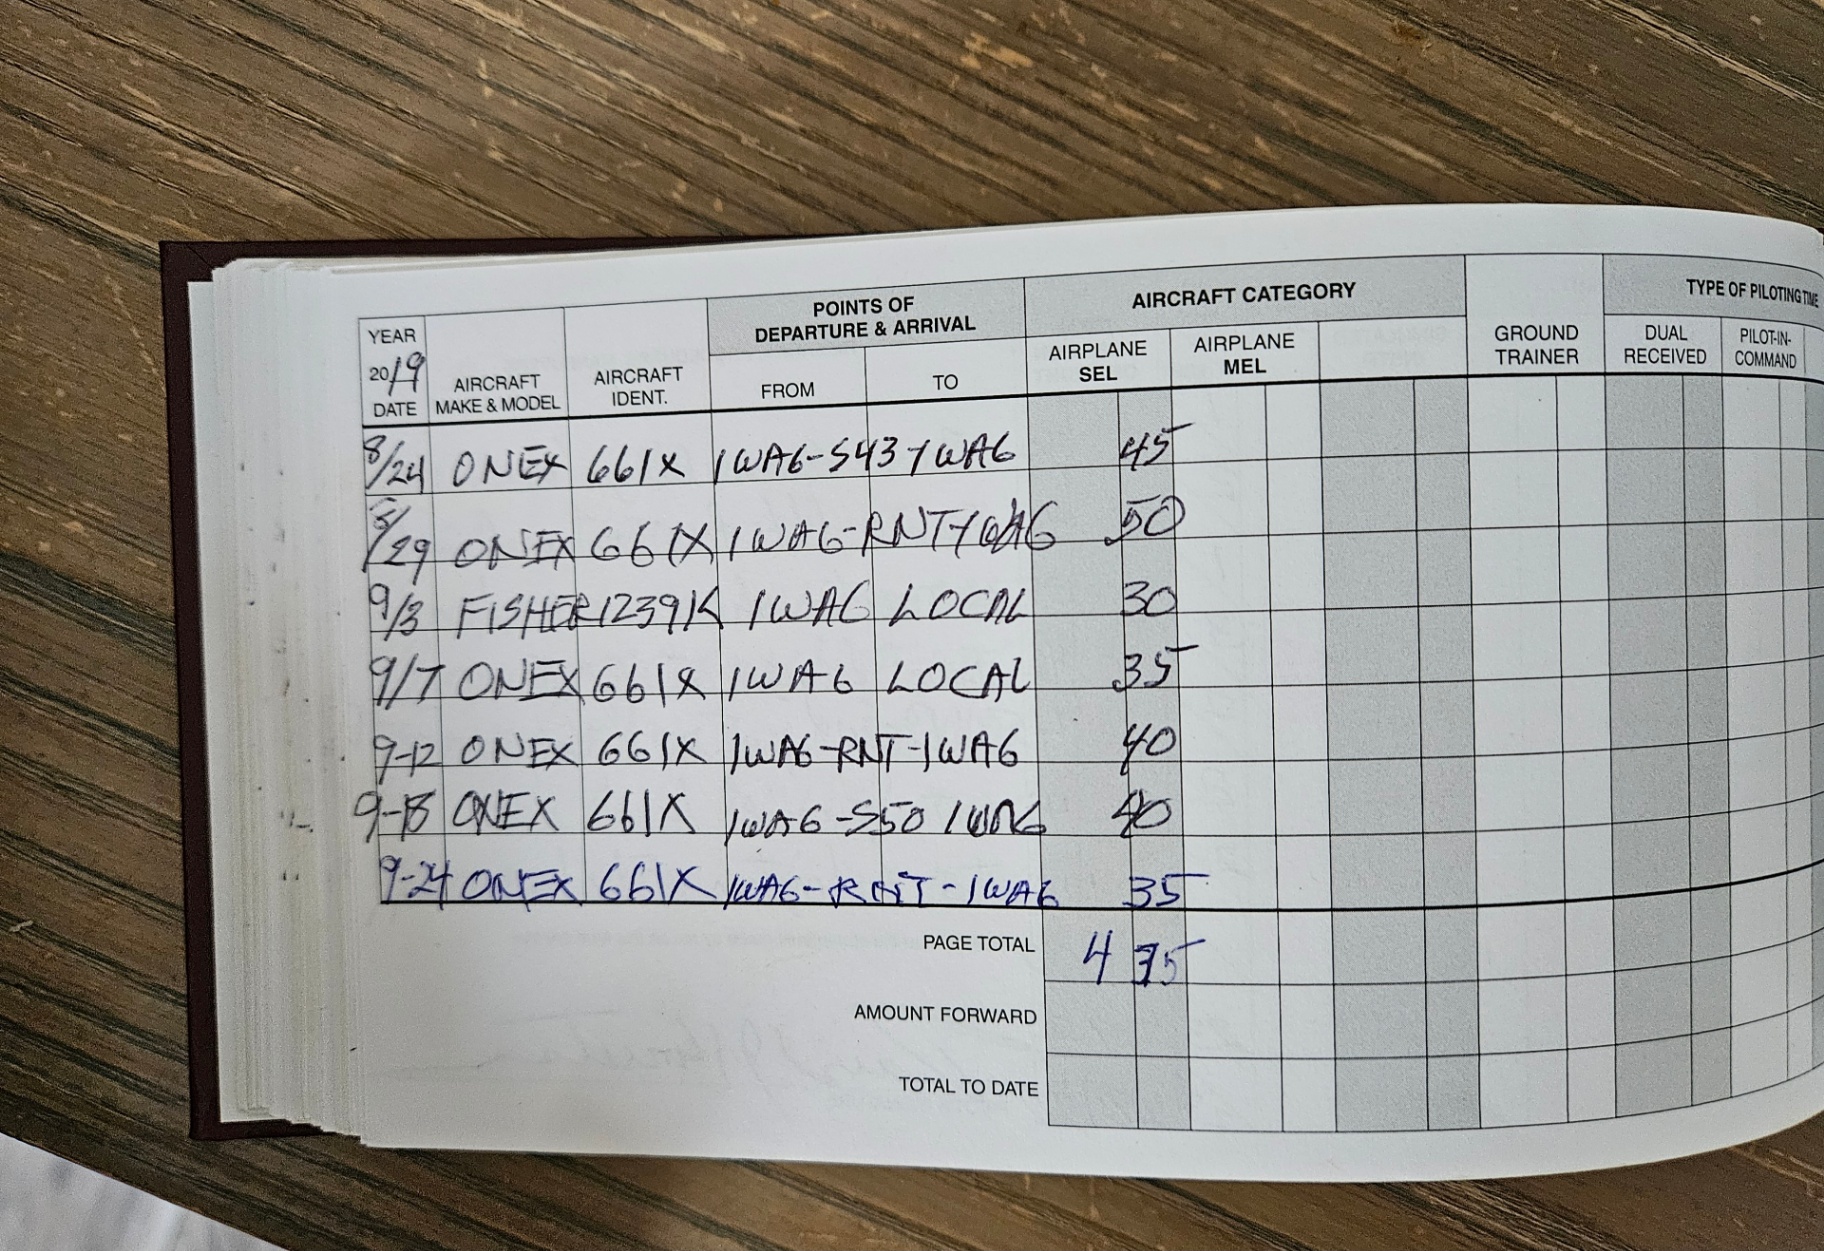 YEAR 2019 DATE AIRCRAFT MAKE & MODEL AIRCRAFT IDENT. POINTS OF DEPARTURE & ARRIVAL FROM TO AIRCRAFT CATEGORY AIRPLANE SEL AIRPLANE MEL GROUND TRAINER TYPE OF PILOTING TIME DUAL RECEIVED PILOT-IN-COMMAND
8/24 ONEX 661X 1WA6-S43-1WA6 45
8/29 ONEX 661X 1WA6-RNT-1WA6 50
9/3 FISHER 1239K 1WA6 LOCAL 30
9/7 ONEX 661X 1WA6 LOCAL 35
9-12 ONEX 661X 1WA6-RNT-1WA6 40
9-18 ONEX 661X 1WA6-S50 1WA6 40
9-24 ONEX 661X 1WA6-RNT-1WA6 35
PAGE TOTAL 4 35
AMOUNT FORWARD
TOTAL TO DATE